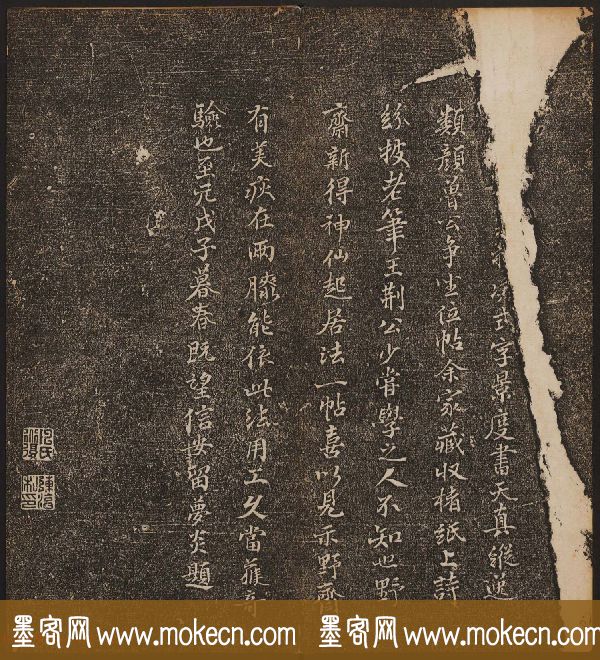 式字景度書天真縱逸
類顏魯公爭坐位帖余家藏收楮紙上詩
絲披老筆王荊公少嘗學之人不知也野
齋新得神仙起居法一帖喜以見示野齋
有美疢在兩臁能依此法用工久當獲奇
驗也至元戊子暮春既望信安留夢炎題
墨客网 www.mokecn.com 墨客网 www.mokecn.com